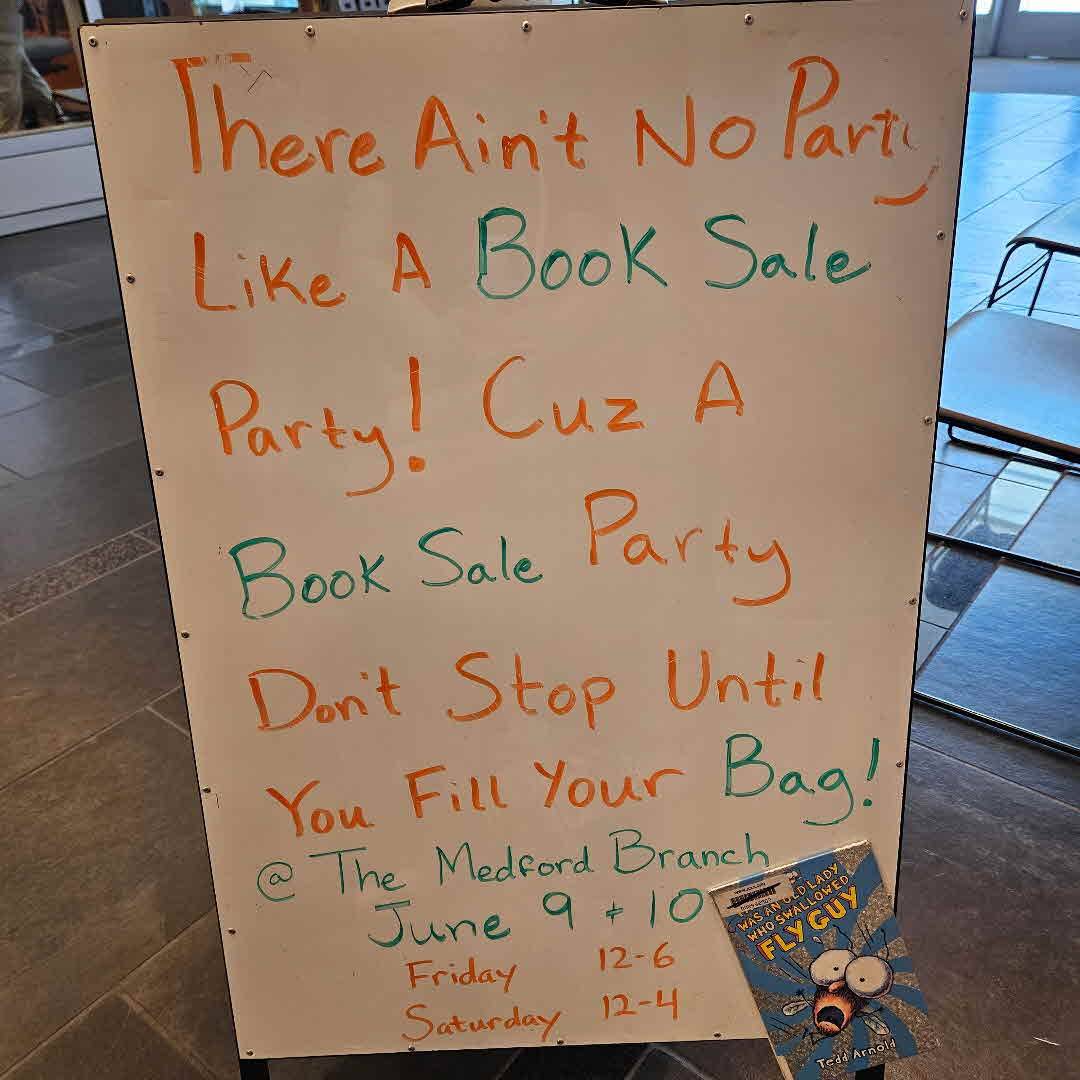 There Ain't No Party
Like A Book Sale
Party! Cuz A
Book Sale Party
Don't Stop Until
You Fill Your Bag!
@ The Medford Branch
June 9 + 10
Friday 12-6
Saturday 12-4
WAS AN OLD LADY
WHO SWALLOWED
FLY GUY
Tedd Arnold